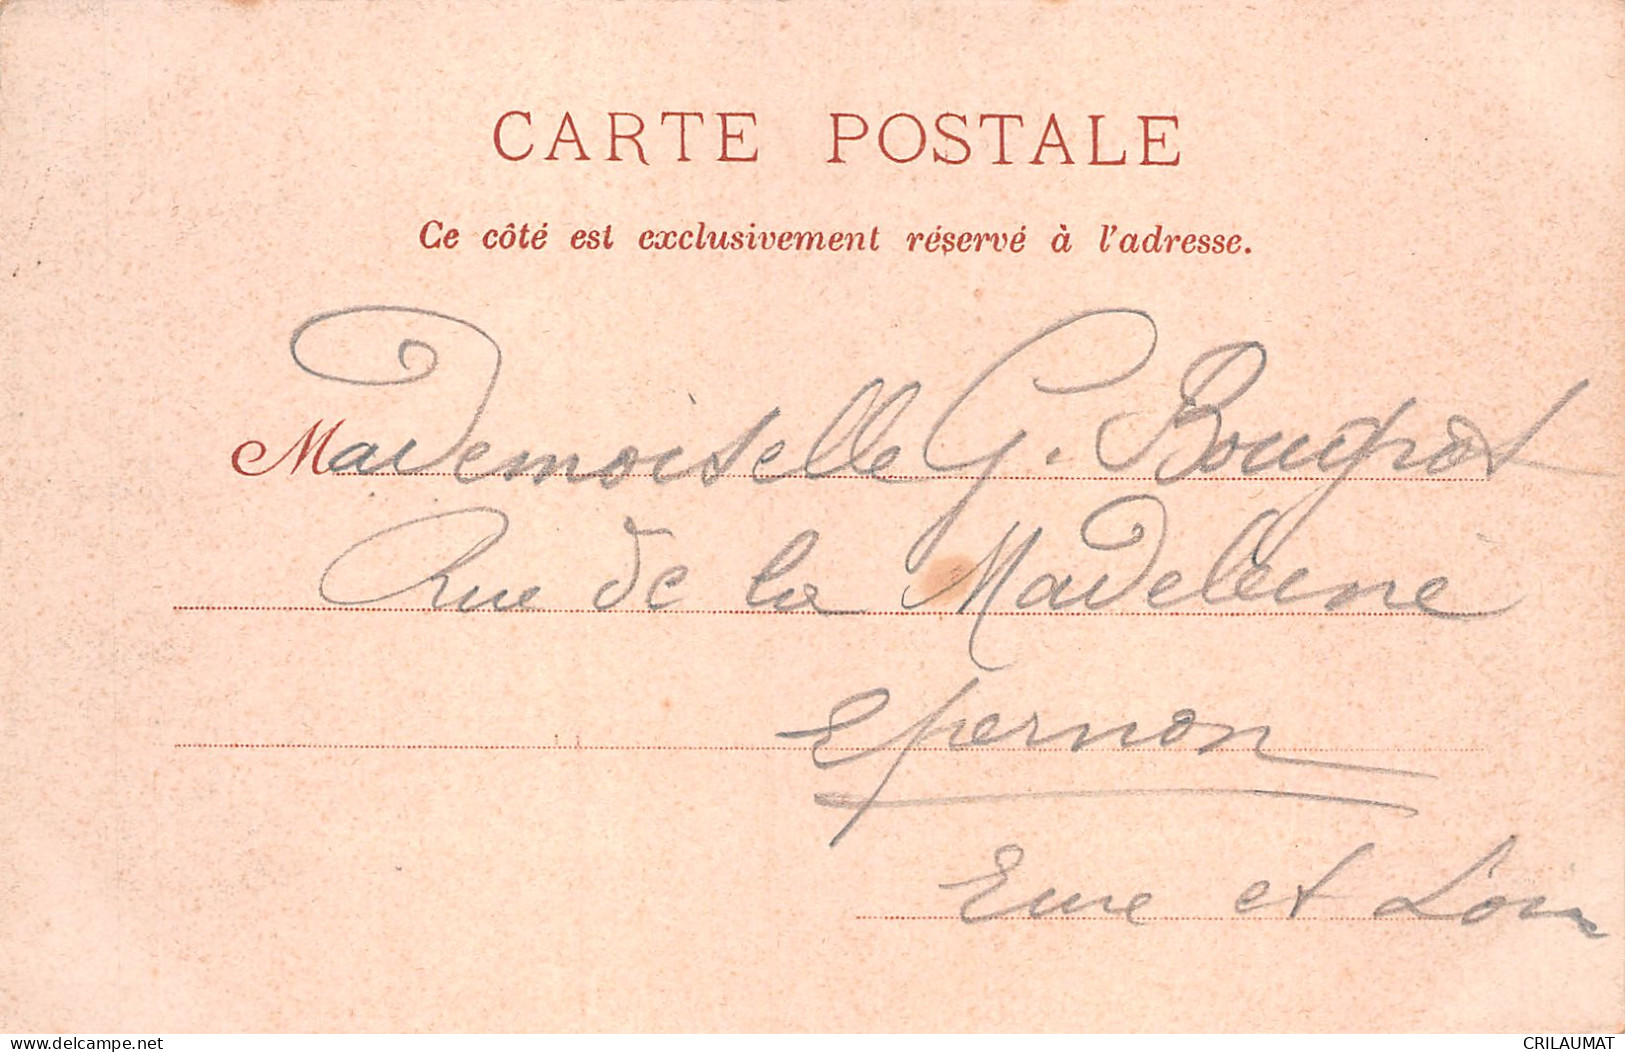 CARTE POSTALE
Ce côté est exclusivement réservé à l'adresse.
Mademoiselle G.
Rue de la Madeleine
Epernon
Eure et Loir
www.delcampe.net
CRILAUMAT